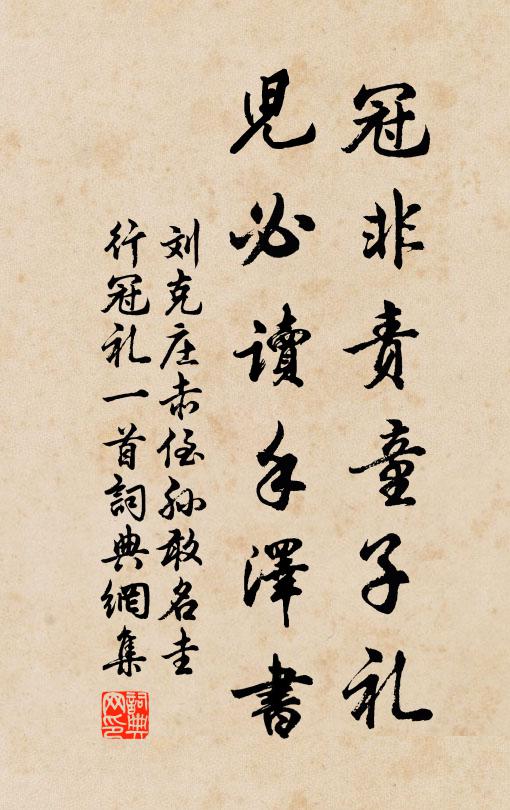 冠非責童子礼
兒必讀手澤書
刘克庄赤侄孙敢名圭
行冠礼一首詞典網集
詞典网印